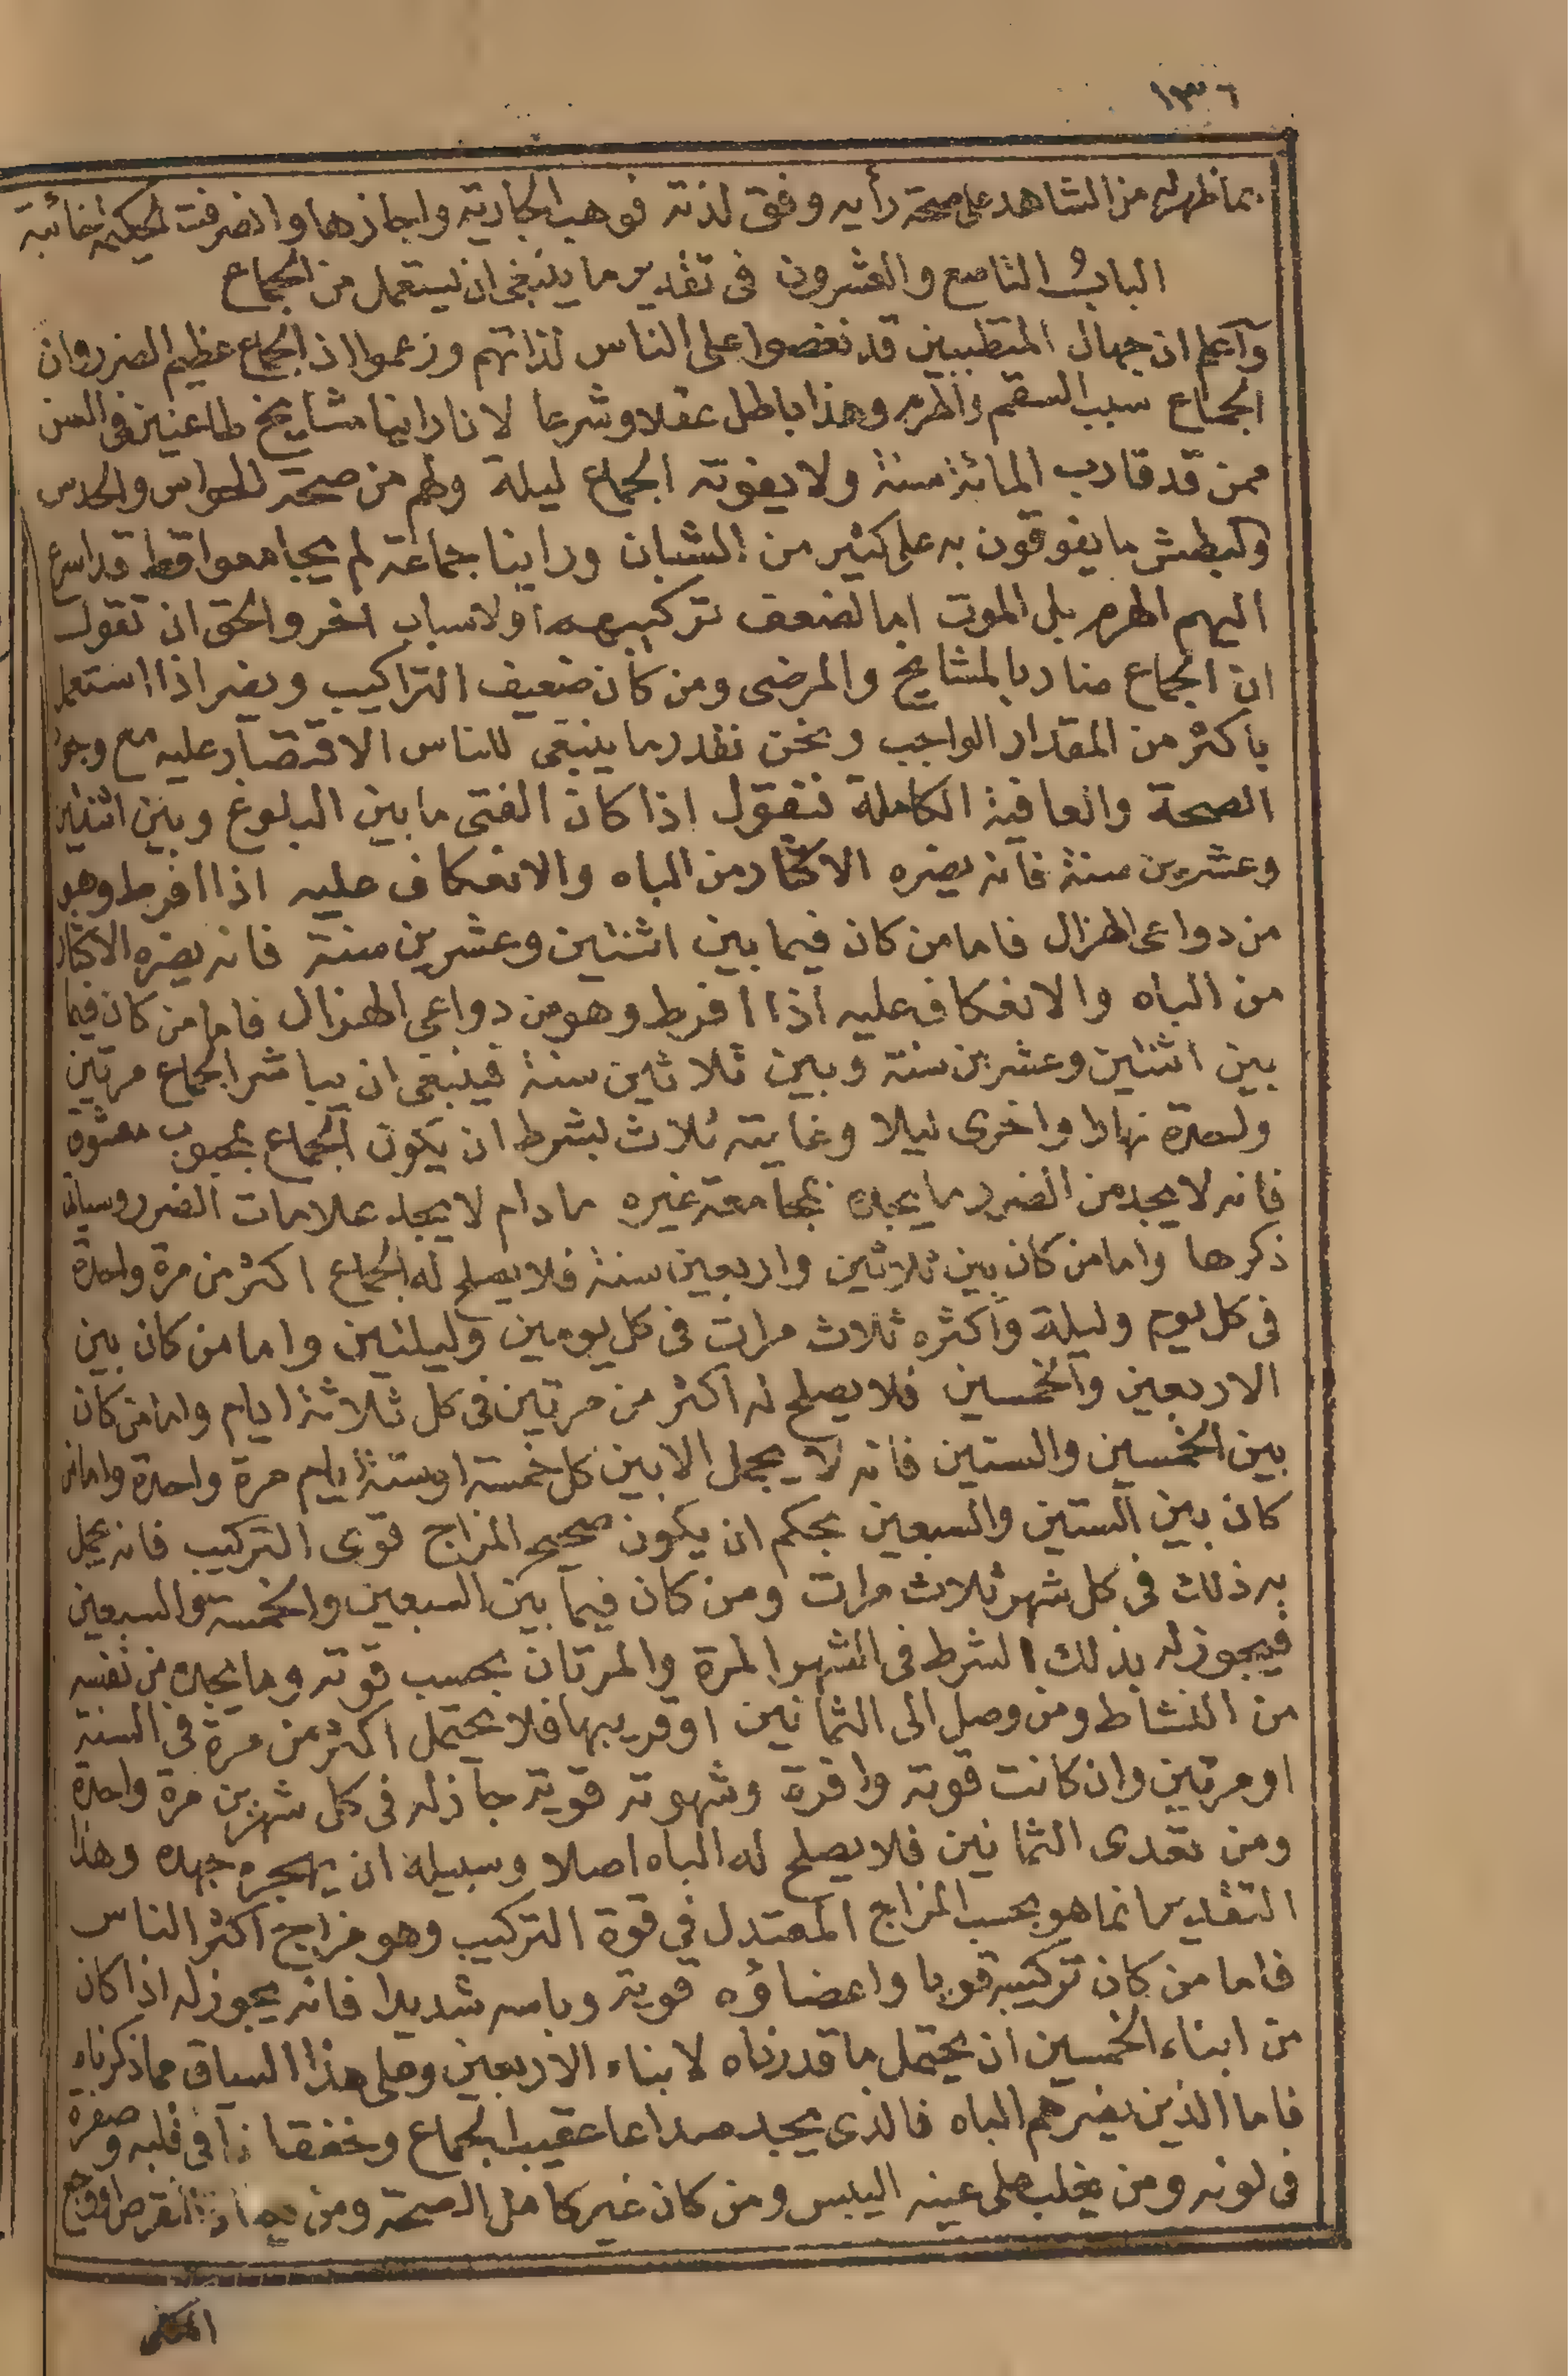 ١٣٦
بما ظهر له من الشاهد على صحة رأيه وفق لذته فوهب الجارية واجازها وانصرفت الحكيمة خائبة
الباب التاسع والعشرون فى تقدير ما ينبغى ان يستعمل من الجماع
وآعلم ان جهال المتطببين قد نغصوا على الناس لذاتهم وزعموا ان الجماع عظيم الضرر وان
الجماع سبب السقم والهرم وهذا باطل عقلا وشرعا لاننا راينا مشايخ طاعنين فى السن
ممن قد قارب المائة سنة ولا يفوته الجماع ليلة ولهم من صحة الحواس والحدس
والبطش ما يفوقون به على كثير من الشبان وراينا جماعة لم يجامعوا قط قد اسرع
اليهم الهرم بل الموت اما لضعف تركيبهم او لاسباب اخر والحق ان تقول
ان الجماع ضار بالمشايخ والمرضى ومن كان ضعيف التراكيب ويضر اذا استعمل
باكثر من المقدار الواجب ونحن نقدر ما ينبغى للناس الاقتصار عليه مع وجود
الصحة والعافية الكاملة فنقول اذا كان الفتى ما بين البلوغ وبين اثنتين
وعشرين سنة فانه يضره الاكثار من الباه والانعكاف عليه اذا افرط وهو
من دواعى الهزال فاما من كان فيما بين اثنتين وعشرين سنة فانه يضره الاكثار
من الباه والانعكاف عليه اذا افرط وهو من دواعى الهزال فاما من كان فيما
بين اثنتين وعشرين سنة وبين ثلاثين سنة فينبغى ان يباشر الجماع مرتين
واحدة نهارا واخرى ليلا وغايته ثلاث بشرط ان يكون الجماع لمحبوب معشوق
فانه لا يجد من الضرر ما يجده بمجامعة غيره مادام لا يجد علامات الضرر وسياتى
ذكرها واما من كان بين ثلاثين واربعين سنة فلا يصلح له الجماع اكثر من مرة واحدة
فى كل يوم وليلة وأكثره ثلاث مرات فى كل يومين وليلتين واما من كان بين
الاربعين والخمسين فلا يصلح له اكثر من مرتين فى كل ثلاثة ايام واما من كان
بين الخمسين والستين فانه لا يجمل الا بين كل خمسة او ستة ايام مرة واحدة واما من
كان بين الستين والسبعين بحكم ان يكون صحيح المزاج قوى التركيب فانه يجمل
به ذلك فى كل شهر ثلاث مرات ومن كان فيما بين السبعين والخمسة والسبعين
فيجوز له بذلك الشرط فى الشهر المرة والمرتان بحسب قوته وما يجده من نفسه
من النشاط ومن وصل الى الثمانين او قريبها فلا يحتمل اكثر من مرة فى السنة
او مرتين وان كانت قوته وافرة وشهوته قوية جاز له فى كل شهرين مرة واحدة
ومن تعدى الثمانين فلا يصلح له الباه اصلا وسبيله ان يهجره جهده وهذا
التقدير انما هو بحسب المزاج المعتدل في قوة التركيب وهو مزاج اكثر الناس
فاما من كان تركيبه قويا واعضاؤه قوية وباسه شديدا فانه يجوز له اذا كان
من ابناء الخمسين ان يحتمل ما قدرناه لابناء الاربعين وعلى هذا السياق مما ذكرناه
فاما الذين يضرهم الباه فالذى يجد صداعا عقيب الجماع وخفقانا فى قلبه وصفرة
فى لونه ومن يغلب على عينه اليبس ومن كان غير كامل الصحة ومن النقرص او وجع